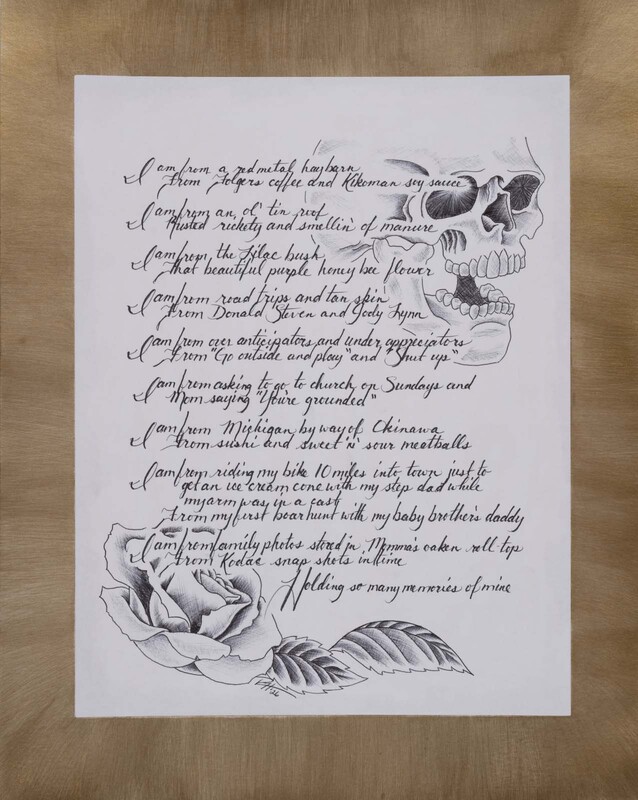 I am from a red metal haybarn
From Folgers coffee and Kikoman soy sauce
I am from an ol' tin roof
Rusted rickety and smellin' of manure
I am from the Lilac bush
That beautiful purple honey bee flower
I am from road trips and tan skin
From Donald Steven and Jody Lynn
I am from over anticipators and under appreciators
From "Go outside and play" and "Shut up"
I am from asking to go to church on Sundays and
Mom saying "You're grounded"
I am from Michigan by way of Okinawa
From sushi and sweet 'n' sour meatballs
I am from riding my bike 10 miles into town just to
get an ice cream cone with my step dad while
my arm was in a cast
From my first boar hunt with my baby brother's daddy
I am from family photos stored in Momma's oaken roll top
From Kodac snap shots in time
Holding so many memories of mine